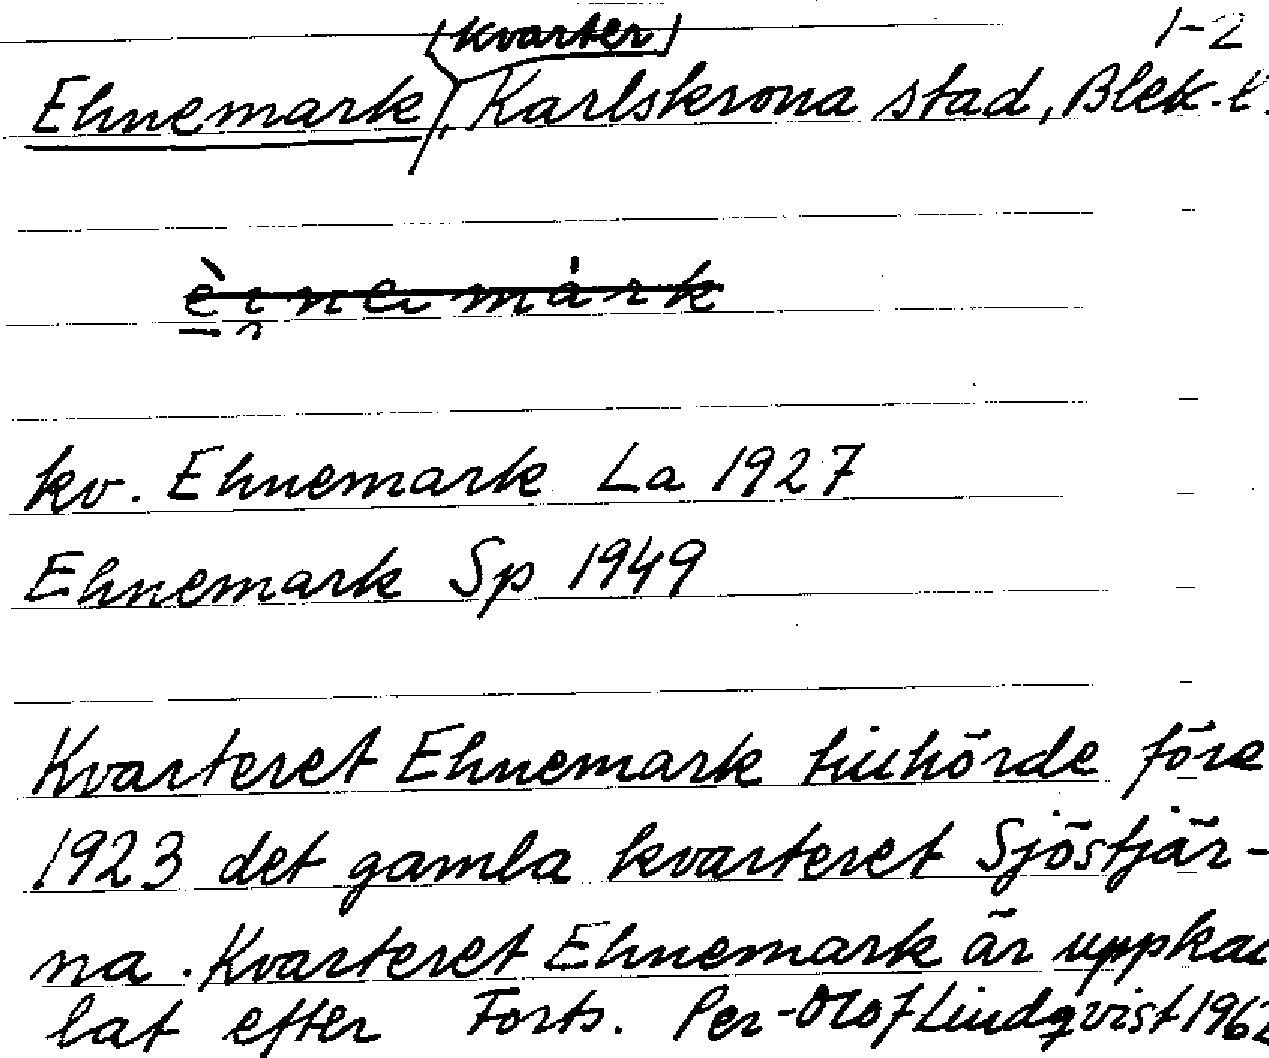 (kvarter) 1-2
Ehnemark, Karlskrona stad, Blek. l.
kv. Ehnemark La 1927
Ehnemark Sp 1949
Kvarteret Ehnemark tillhörde före
1923 det gamla kvarteret Sjöstjär-
na. Kvarteret Ehnemark är uppkal
lat efter Forts. Per-Olof Lindqvist 1962